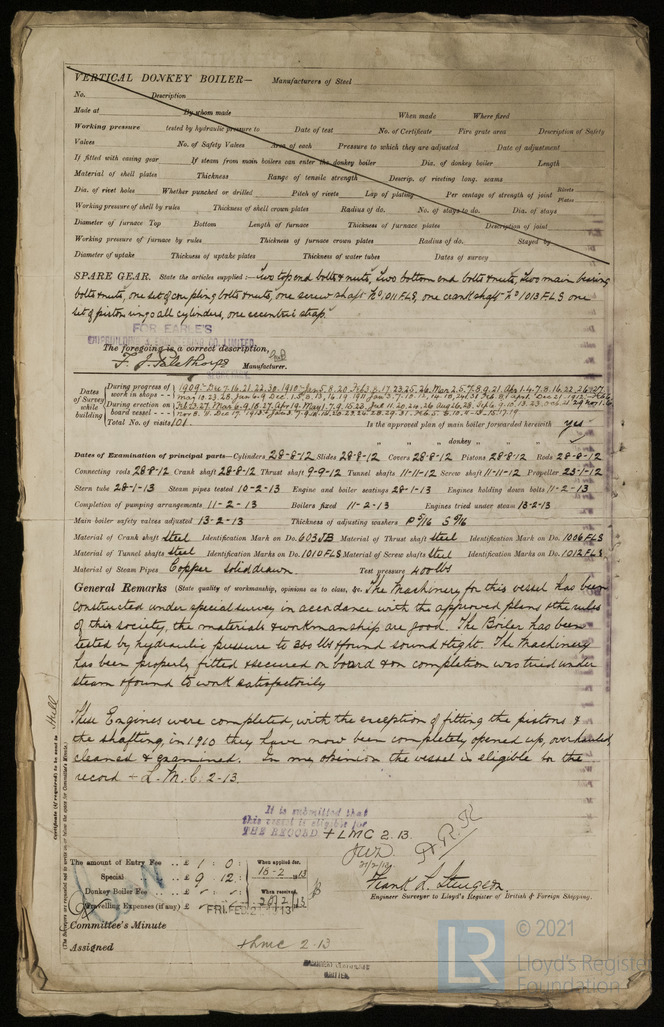 VERTICAL DONKEY BOILER— Manufacturers of Steel
No. Description
Made at By whom made When made Where fixed
Working pressure tested by hydraulic pressure to Date of test No. of Certificate Fire grate area Description of Safety
Valves No. of Safety Valves Area of each Pressure to which they are adjusted Date of adjustment
If fitted with easing gear If steam from main boilers can enter the donkey boiler Dia. of donkey boiler Length
Material of shell plates Thickness Range of tensile strength Descrip. of riveting long. seams
Dia. of rivet holes Whether punched or drilled Pitch of rivets Lap of plating Per centage of strength of joint Rivets Plates
Working pressure of shell by rules Thickness of shell crown plates Radius of do. No. of stays to do. Dia. of stays
Diameter of furnace Top Bottom Length of furnace Thickness of furnace plates Description of joint
Working pressure of furnace by rules Thickness of furnace crown plates Radius of do. Stayed by
Diameter of uptake Thickness of uptake plates Thickness of water tubes Dates of survey
SPARE GEAR. State the articles supplied:— Two top end bolts & nuts, Two bottom end bolts & nuts, Two main bearing
bolts & nuts, one set of coupling bolts & nuts, one screw shaft No 1011 FLS, one crank shaft No 1013 FLS one
set of piston rings all cylinders, one eccentric strap.
FOR EARLE'S
The foregoing is a correct description,
Manufacturer.
Dates of Survey while building
During progress of work in shops --
During erection on board vessel ---
Total No. of visits 101.
Is the approved plan of main boiler forwarded herewith yes
" " " donkey " "
Dates of Examination of principal parts—Cylinders 28-8-12 Slides 28-8-12 Covers 28-8-12 Pistons 28-8-12 Rods 28-8-12
Connecting rods 28-8-12 Crank shaft 28-8-12 Thrust shaft 9-9-12 Tunnel shafts 11-11-12 Screw shaft 11-11-12 Propeller 23-1-12
Stern tube 28-1-13 Steam pipes tested 10-2-13 Engine and boiler seatings 28-1-13 Engines holding down bolts 11-2-13
Completion of pumping arrangements 11-2-13 Boilers fixed 11-2-13 Engines tried under steam 13-2-13
Main boiler safety valves adjusted 13-2-13 Thickness of adjusting washers P 9/16 S 9/16
Material of Crank shaft Steel Identification Mark on Do. 603JB Material of Thrust shaft Steel Identification Mark on Do. 1006 FLS
Material of Tunnel shafts Steel Identification Marks on Do. 1010 FLS Material of Screw shafts Steel Identification Marks on Do. 1012 FLS
Material of Steam Pipes Copper solid drawn Test pressure 400 lbs
General Remarks (State quality of workmanship, opinions as to class, &c. The Machinery for this vessel has been
constructed under special survey in accordance with the approved plans & the rules
of this society, the materials & workmanship are good. The Boiler has been
tested by hydraulic pressure to 360 lbs & found sound & tight. The Machinery
has been properly fitted & secured on board & on completion was tried under
steam & found to work satisfactorily
These Engines were completed, with the exception of fitting the pistons &
the shafting, in 1910 they have now been completely opened up, overhauled,
cleaned & examined. In my opinion the vessel is eligible for the
record + L.M.C. 2-13.
It is submitted that
this vessel is eligible for
THE RECORD. + LMC 2.13.
The amount of Entry Fee .. £ 1 : 0 : When applied for.
Special .. £ 9 : 12 : 15-2-13
Donkey Boiler Fee .. £ When received.
Travelling Expenses (if any) £ 20/2/13
FRI. FEB. 21 1913
Frank L. Sturgeon.
Engineer Surveyor to Lloyd's Register of British & Foreign Shipping.
Committee's Minute
Assigned + LMC 2.13
Certificate (if required) to be sent to Hull
(The Surveyors are requested not to write on or below the space for Committee's Minute.)
© 2021
LR
Lloyd's Register
Foundation